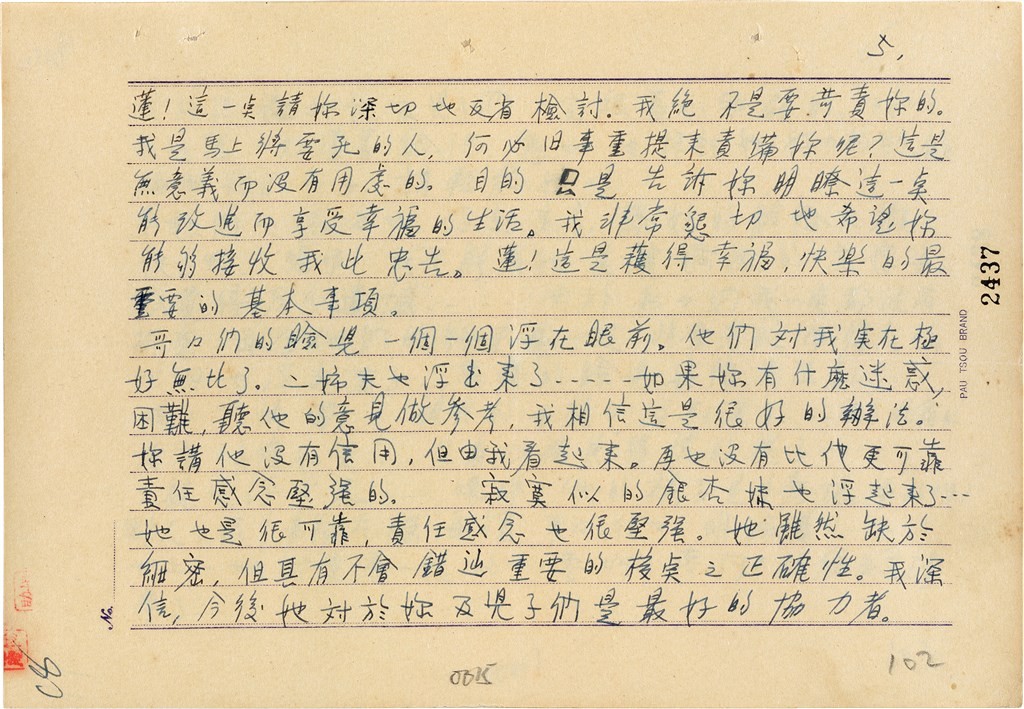 5.
蓮！這一点請妳深切地反省檢討。我絕不是要苛責妳的。
我是馬上將要死的人，何必旧事重提来責備妳呢？這是
無意義而没有用處的。目的只是告訴妳明瞭這一点
能改進而享受幸福的生活。我非常懇切地希望妳
能够接收我此忠告。蓮！這是獲得幸福，快樂的最
重要的基本事項。
哥々们的臉見一個一個浮在眼前。他們対我実在極
好無比了。二姉夫也浮出来了-----如果妳有什麽迷惑，
困難，聽他的意見做參考，我相信這是很好的辦法。
妳講他没有信用，但由我看起来。再也没有比他更可靠
責任感念堅强的。寂寞似的銀杏妹也浮起来了---
她也是很可靠，責任感念也很堅强。她雖然缺於
細密，但具有不會錯过重要的核点之正確性。我深
信，今後她対於妳及児子們是最好的協力者。
No.
2437
PAU TSOU BRAND
0035
102